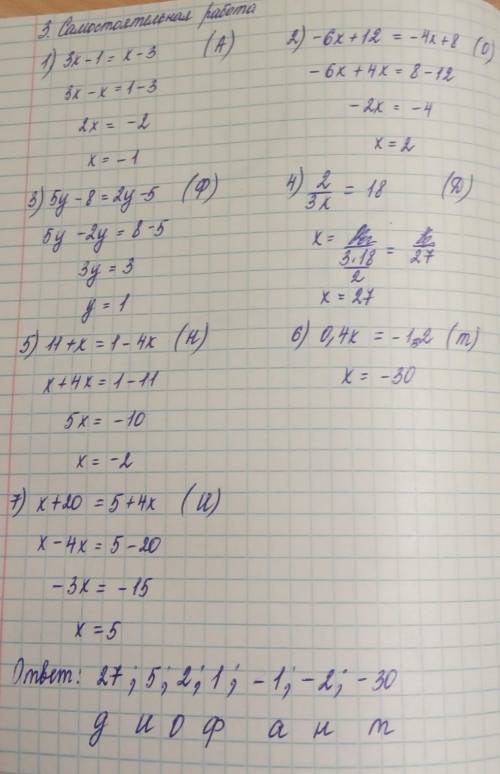 3. Самостоятельная работа
1) 3x-1 = x-3 (А)
3x-x = 1-3
2x = -2
x = -1
2) -6x+12 = -4x+8 (О)
-6x+4x = 8-12
-2x = -4
x = 2
3) 5y-8 = 2y-5 (Ф)
5y-2y = 8-5
3y = 3
y = 1
4) 2/3x = 18 (Д)
x = 3·18/2 = /27
x = 27
5) 11+x = 1-4x (Н)
x+4x = 1-11
5x = -10
x = -2
6) 0,4x = -12 (т)
x = -30
7) x+20 = 5+4x (И)
x-4x = 5-20
-3x = -15
x = 5
Ответ: 27; 5; 2; 1; -1; -2; -30
д и о ф а н т